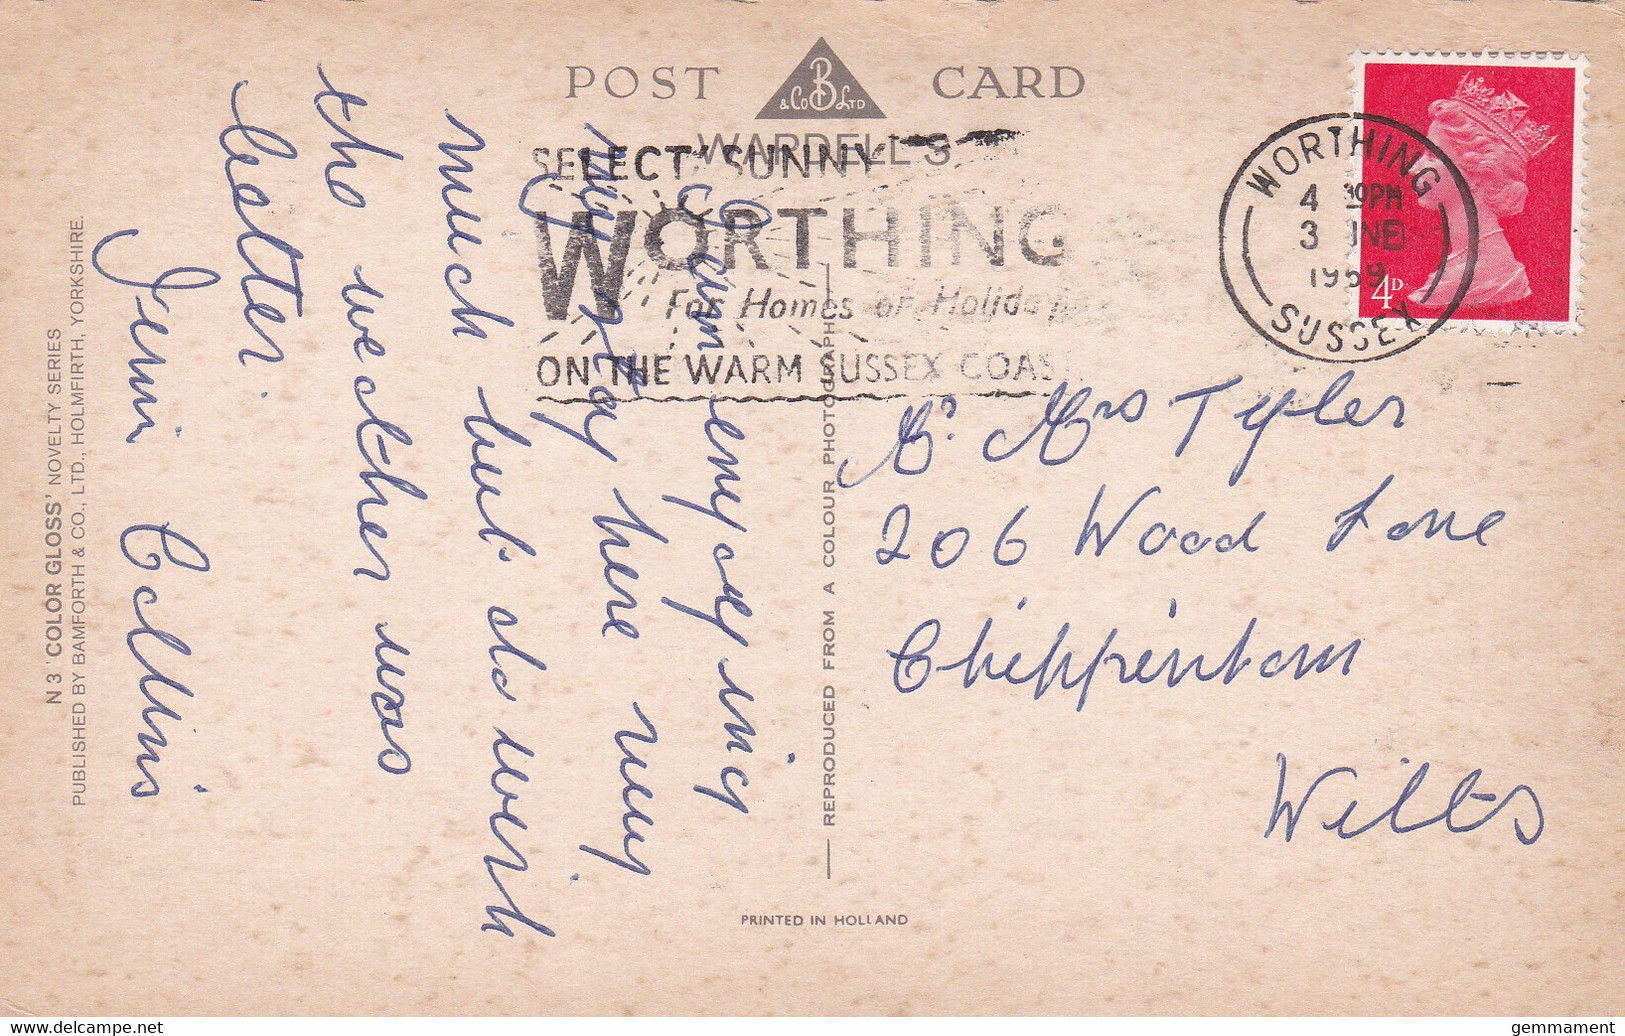 POST CARD
B
& Co LTD
WARDELL'S
SELECT SUNNY
WORTHING
For Homes or Holidays
ON THE WARM SUSSEX COAST
WORTHING
4 30PM
3 JNE
1969
SUSSEX
4D
I am enyoying
my stay here very
much but do wish
the weather was
better.
Jenni Collins
Mr. Mrs Tyler
206 Wood Lane
Chippenham
Wilts
REPRODUCED FROM A COLOUR PHOTOGRAPH
PRINTED IN HOLLAND
N 3 'COLOR GLOSS' NOVELTY SERIES
PUBLISHED BY BAMFORTH & CO., LTD., HOLMFIRTH, YORKSHIRE.
gemmament